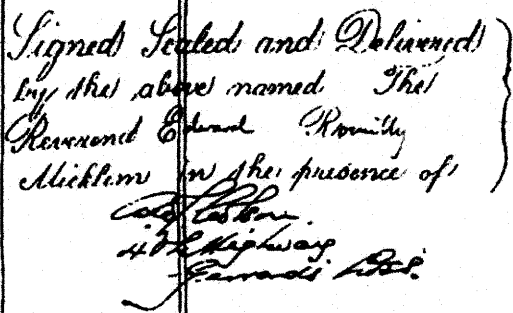 Signed Sealed and Delivered
by the above named The
Reverend Edward Romilly
Micklem in the presence of
Highway
Gerrards